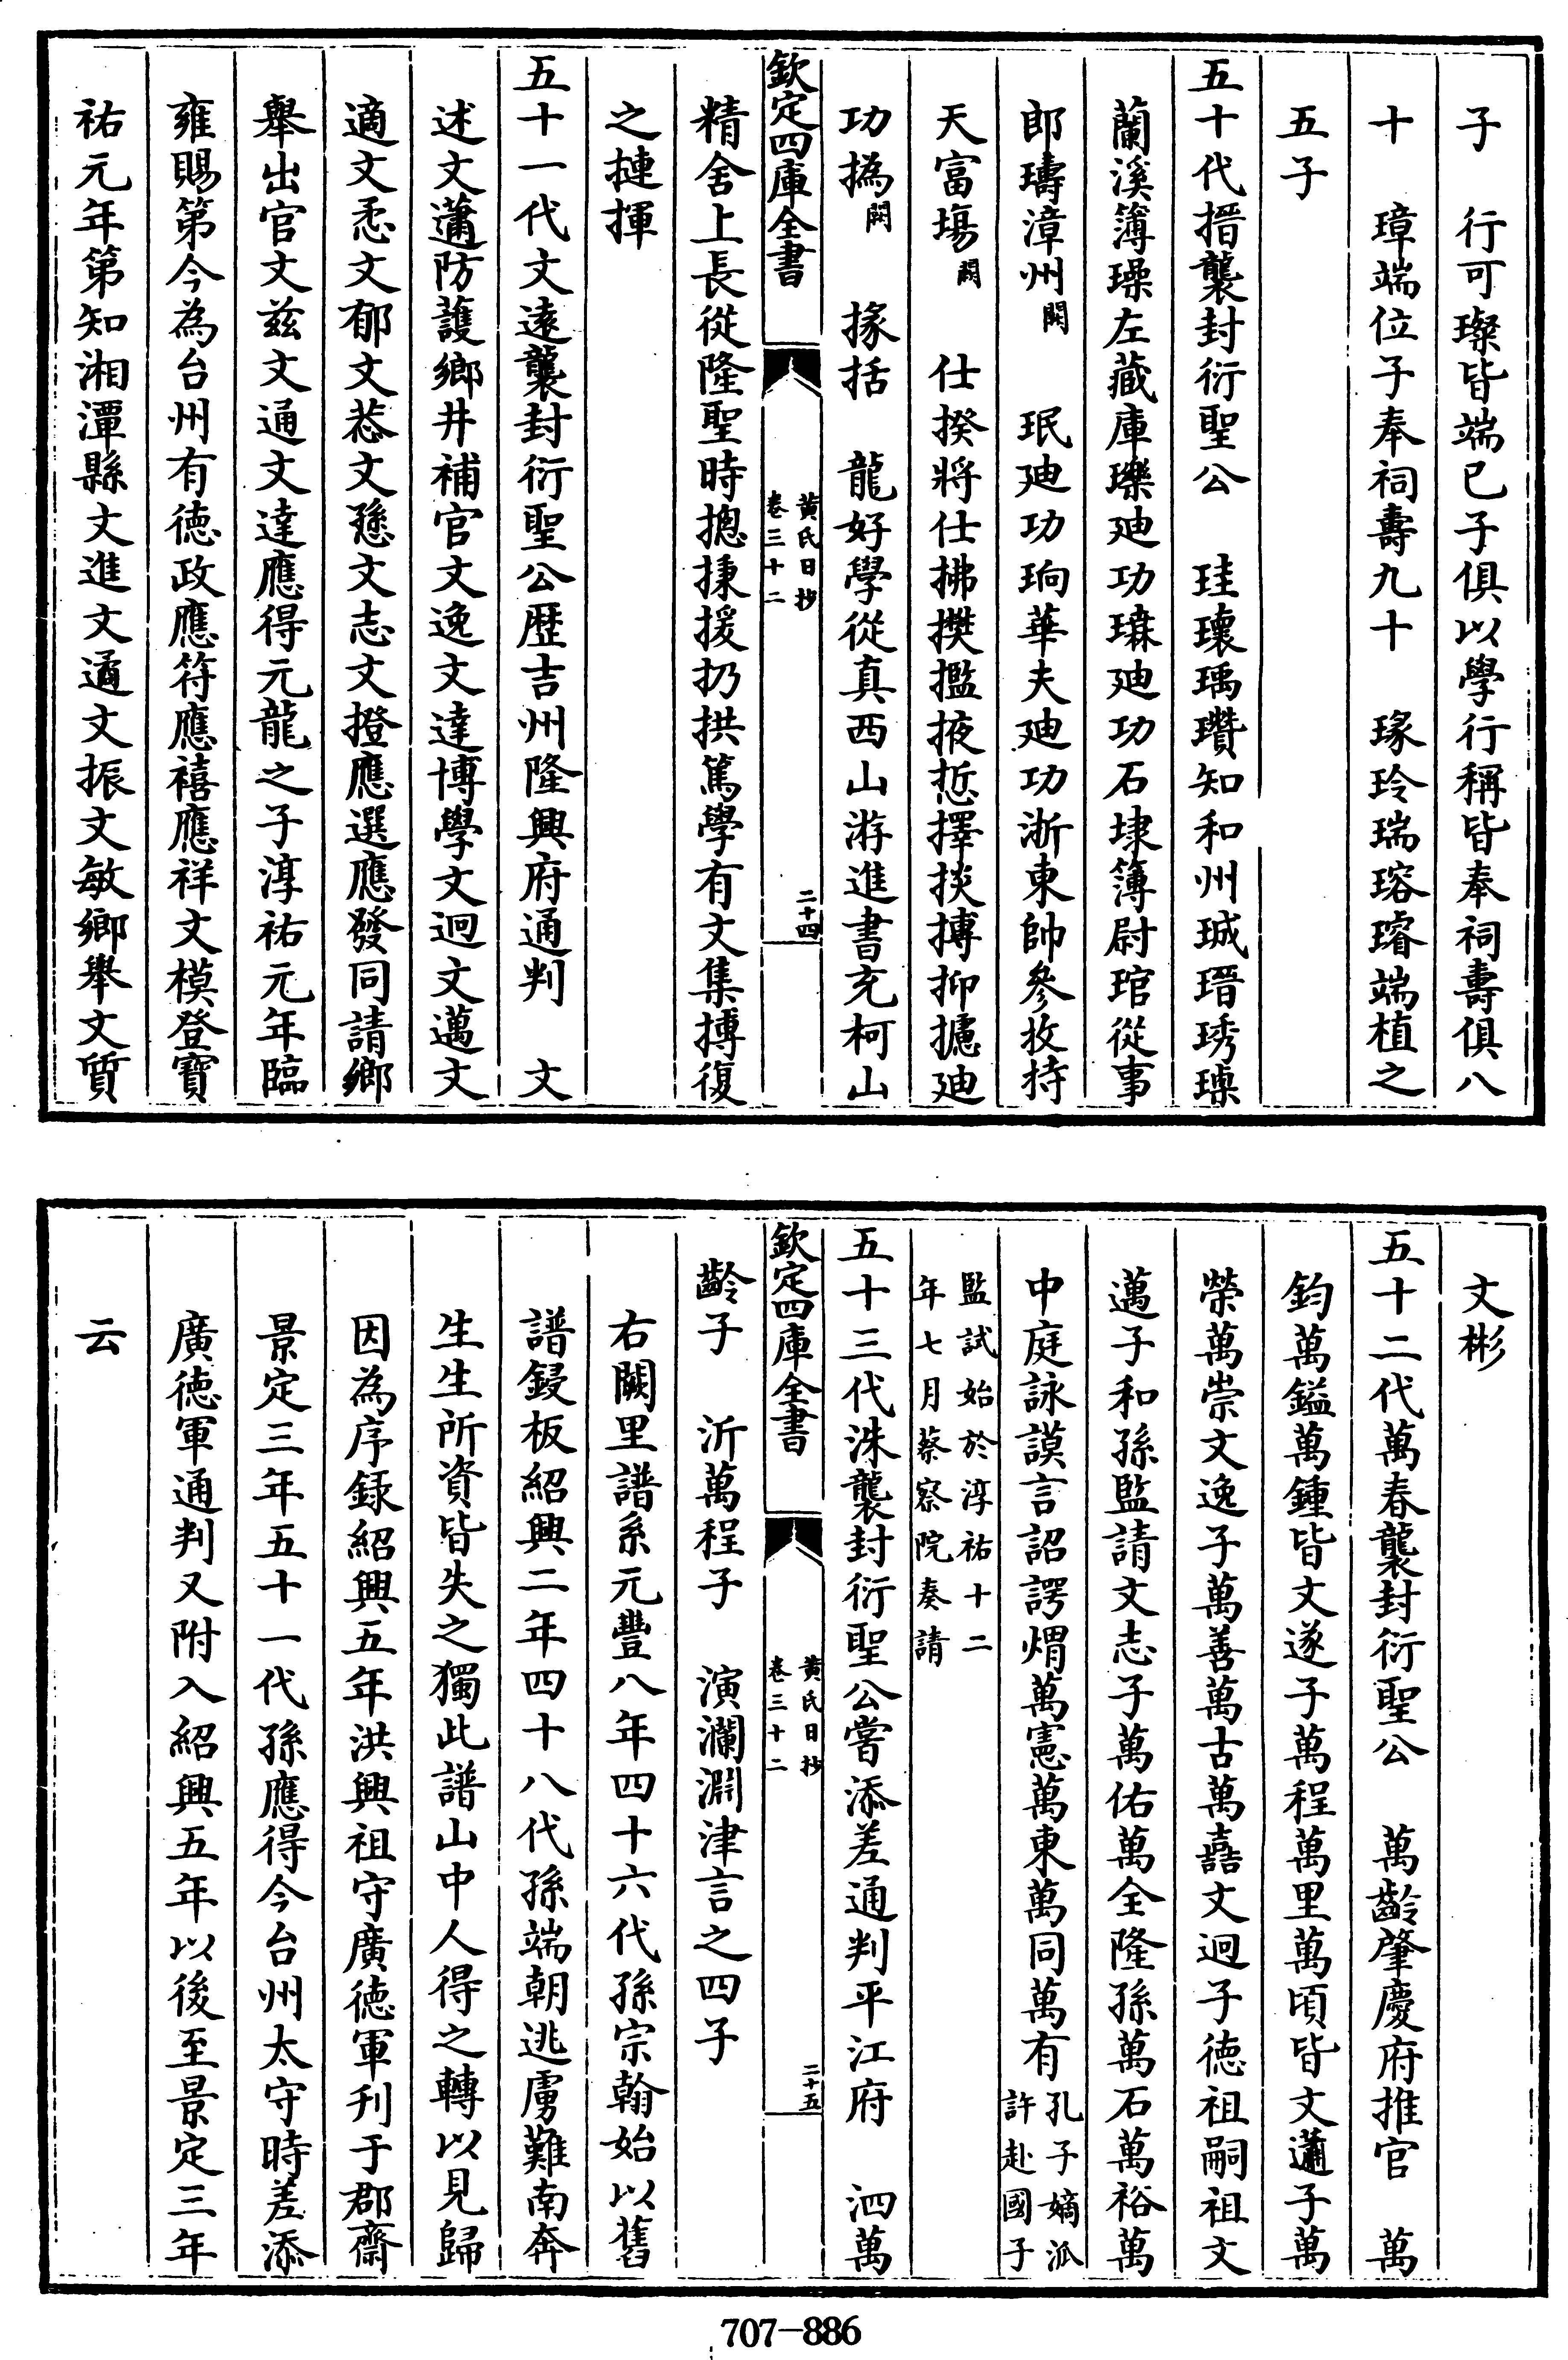 子　行可璨皆端已子俱以學行稱皆奉祠壽俱八
十　璋端位子奉祠壽九十　瑑玲瑞瑢璿端植之
五子
五十代搢襲封衍聖公　珪瓌瑀瓚知和州珹瑨琇璖
蘭溪簿璪左藏庫瓅廸功瑧廸功石埭簿尉琯從事
郎璹漳州闕　珉廸功珦華夫廸功浙東帥參抆持
天富塲闕　仕揆將仕拂攅㩜掖㥄擇掞摶抑攄廸
功撝闕　掾括　龍好學從真西山游進書充柯山
欽定四庫全書
黃氏日抄
卷三十二
二十四
精舍上長從隆聖時摠捸援扔拱篤學有文集搏復
之摙揮
五十一代文逺襲封衍聖公歴吉州隆興府通判　文
述文薖防護鄉井補官文逸文達博學文迥文邁文
適文悫文郁文惎文㦤文志文撜應選應發同請鄉
舉出官文兹文通文達應得元龍之子淳祐元年臨
雍賜第今為台州有德政應符應禧應祥文模登寶
祐元年第知湘潭縣文進文遹文振文敏鄉舉文質
文彬
五十二代萬春襲封衍聖公　萬齡肇慶府推官　萬
鈞萬鎰萬鍾皆文遂子萬程萬里萬頃皆文薖子萬
榮萬崇文逸子萬善萬古萬嚞文迥子德祖嗣祖文
邁子和孫監請文志子萬佑萬全隆孫萬石萬裕萬
中庭詠謨言詔諤焆萬憲萬東萬同萬有孔子嫡派
許赴國子
監試始於淳祐十二
年七月蔡察院奏請
五十三代洙襲封衍聖公嘗添差通判平江府　泗萬
欽定四庫全書
黃氏日抄
卷三十二
二十五
齡子　沂萬程子　演瀾淵津言之四子
右闕里譜系元豐八年四十六代孫宗翰始以舊
譜鋟板紹興二年四十八代孫端朝逃虜難南奔
生生所資皆失之獨此譜山中人得之轉以見歸
因為序録紹興五年洪興祖守廣德軍刋于郡齋
景定三年五十一代孫應得今台州太守時差添
廣德軍通判又附入紹興五年以後至景定三年
云
707—886